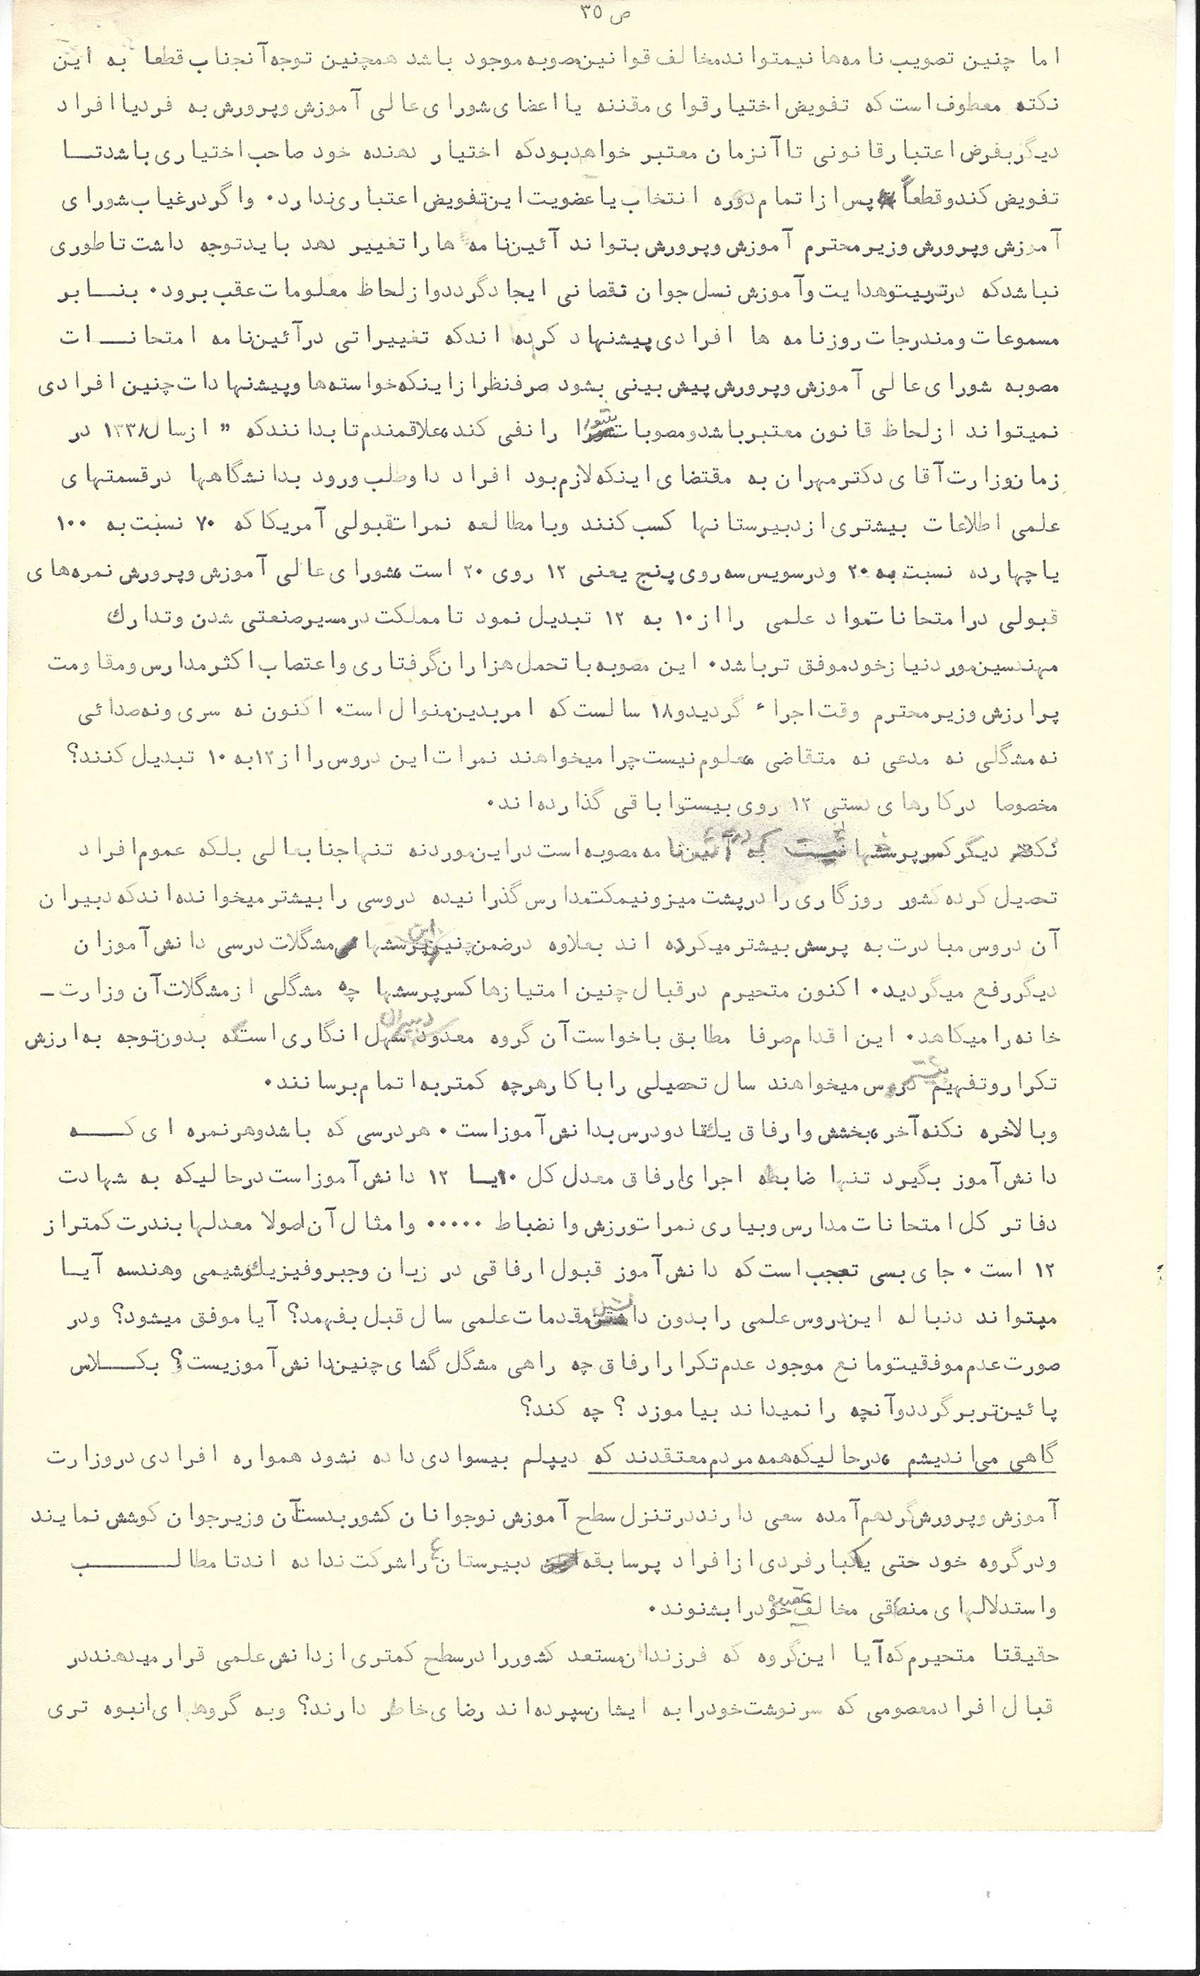 ص ۳۵
اما چنین تصویب نامه‌ها نیمتواند مخالف قوانین مصوبه موجود باشد همچنین توجه آنجناب قطعا به این
نکته معطوف است که تفویض اختیار قوای مقننه یا اعضای شورای عالی آموزش و پرورش به فرد یا افراد
دیگر بفرض اعتبار قانونی تا آنزمان معتبر خواهد بود که اختیار دهنده خود صاحب اختیاری باشد تا
تفویض کند و قطعاً پس از اتمام دوره انتخاب یا عضویت این تفویض اعتباری ندارد۰ و اگر در غیاب شورای
آموزش و پرورش وزیر محترم آموزش و پرورش بتواند آئین‌نامه ها را تغییر دهد باید توجه داشت تا طوری
نباشد که در تربیت و هدایت و آموزش نسل جوان نقصانی ایجاد گردد و از لحاظ معلومات عقب برود۰ بنا بر
مسموعات و مندرجات روزنامه ها افرادی پیشنهاد کرده اند که تغییراتی در آئین‌نامه امتحانات
مصوبه شورای عالی آموزش و پرورش پیش بینی بشود صرفنظر از اینکه خواسته‌ها و پیشنهادات چنین افرادی
نمیتواند از لحاظ قانون معتبر باشد و مصوبات شورا را نفی کند، علاقمندم تا بدانند که " از سال ۱۳۳۸ در
زمان وزارت آقای دکتر مهران به مقتضای اینکه لازم بود افراد داوطلب ورود بدانشگاهها در قسمتهای
علمی اطلاعات بیشتری از دبیرستانها کسب کنند و با مطالعه نمرات قبولی آمریکا که ۷۰ نسبت به ۱۰۰
یا چهارده نسبت به ۲۰ و در سویس سه روی پنج یعنی ۱۲ روی ۲۰ است، شورای عالی آموزش و پرورش نمره‌های
قبولی در امتحانات مواد علمی را از ۱۰ به ۱۲ تبدیل نمود تا مملکت در مسیر صنعتی شدن و تدارك
مهندسین مورد نیاز خود موفق تر باشد۰ این مصوبه با تحمل هزاران گرفتاری و اعتصاب اکثر مدارس و مقاومت
پر ارزش وزیر محترم وقت اجراء گردید و ۱۸ سالست که امر بدین منوال است۰ اکنون نه سری و نه صدائی
نه مشگلی نه مدعی نه متقاضی معلوم نیست چرا میخواهند نمرات این دروس را از ۱۲ به ۱۰ تبدیل کنند؟
مخصوصا در کارهای دستی ۱۲ روی بیست را باقی گذارده‌اند۰
نکته دیگر کسر پرسشهائیست که در آئین‌نامه مصوبه است در این مورد نه تنها جنابعالی بلکه عموم افراد
تحصیل کرده کشور روزگاری را در پشت میز و نیمکت مدارس گذرانیده دروسی را بیشتر میخوانده‌اند که دبیران
آن دروس مبادرت به پرسش بیشتر میکرده اند بعلاوه در ضمن این پرسشها مشگلات درسی دانش‌آموزان
دیگر رفع میگردید۰ اکنون متحیرم در قبال چنین امتیازها کسر پرسشها چه مشگلی از مشگلات آن وزارت ـ
خانه را میکاهد۰ این اقدام صرفا مطابق با خواست آن گروه معدود دبیران سهل انگاری است که بدون توجه به ارزش
تکرار و تفهیم بیشتر دروس میخواهند سال تحصیلی را با کار هر چه کمتر به اتمام برسانند۰
و بالاخره نکنه آخر، بخشش و ارفاق یك تا دو درس بدانش‌آموز است۰ هر درسی که باشد و هر نمره ای که
دانش‌آموز بگیرد تنها ضابطه اجرای ارفاق معدل کل ۱۰ یا ۱۲ دانش‌آموز است در حالیکه به شهادت
دفاتر کل امتحانات مدارس و بیاری نمرات ورزش و انضباط ۰۰۰۰۰ و امثال آن اصولا معدلها بندرت کمتر از
۱۲ است۰ جای بسی تعجب است که دانش‌آموز قبول ارفاقی در زبان و جبر و فیزیك و شیمی و هندسه آیا
میتواند دنباله این دروس علمی را بدون دانستن مقدمات علمی سال قبل بفهمد؟ آیا موفق میشود؟ و در
صورت عدم موفقیت و مانع موجود عدم تکرار ارفاق چه راهی مشگل گشای چنین دانش‌آموزیست؟ بکلاس
پائین‌تر برگردد و آنچه را نمیداند بیاموزد ؟ چه کند؟
گاهی می‌اندیشم، در حالیکه همه مردم معتقدند که دیپلم بیسوادی داده نشود همواره افرادی در وزارت
آموزش و پرورش گرد هم آمده سعی دارند در تنزل سطح آموزش نوجوانان کشور بدست آن وزیر جوان کوشش نمایند
و در گروه خود حتی یکبار فردی از افراد پر سابقه دبیرستان را شرکت نداده اند تا مطالب
و استدلالهای منطقی مخالف عقیده خود را بشنوند۰
حقیقتا متحیرم که آیا این گروه که فرزندان مستعد کشور را در سطح کمتری از دانش علمی قرار میدهند در
قبال افراد معصومی که سرنوشت خود را به ایشان سپرده‌اند رضای خاطر دارند؟ و به گروههای انبوه تری